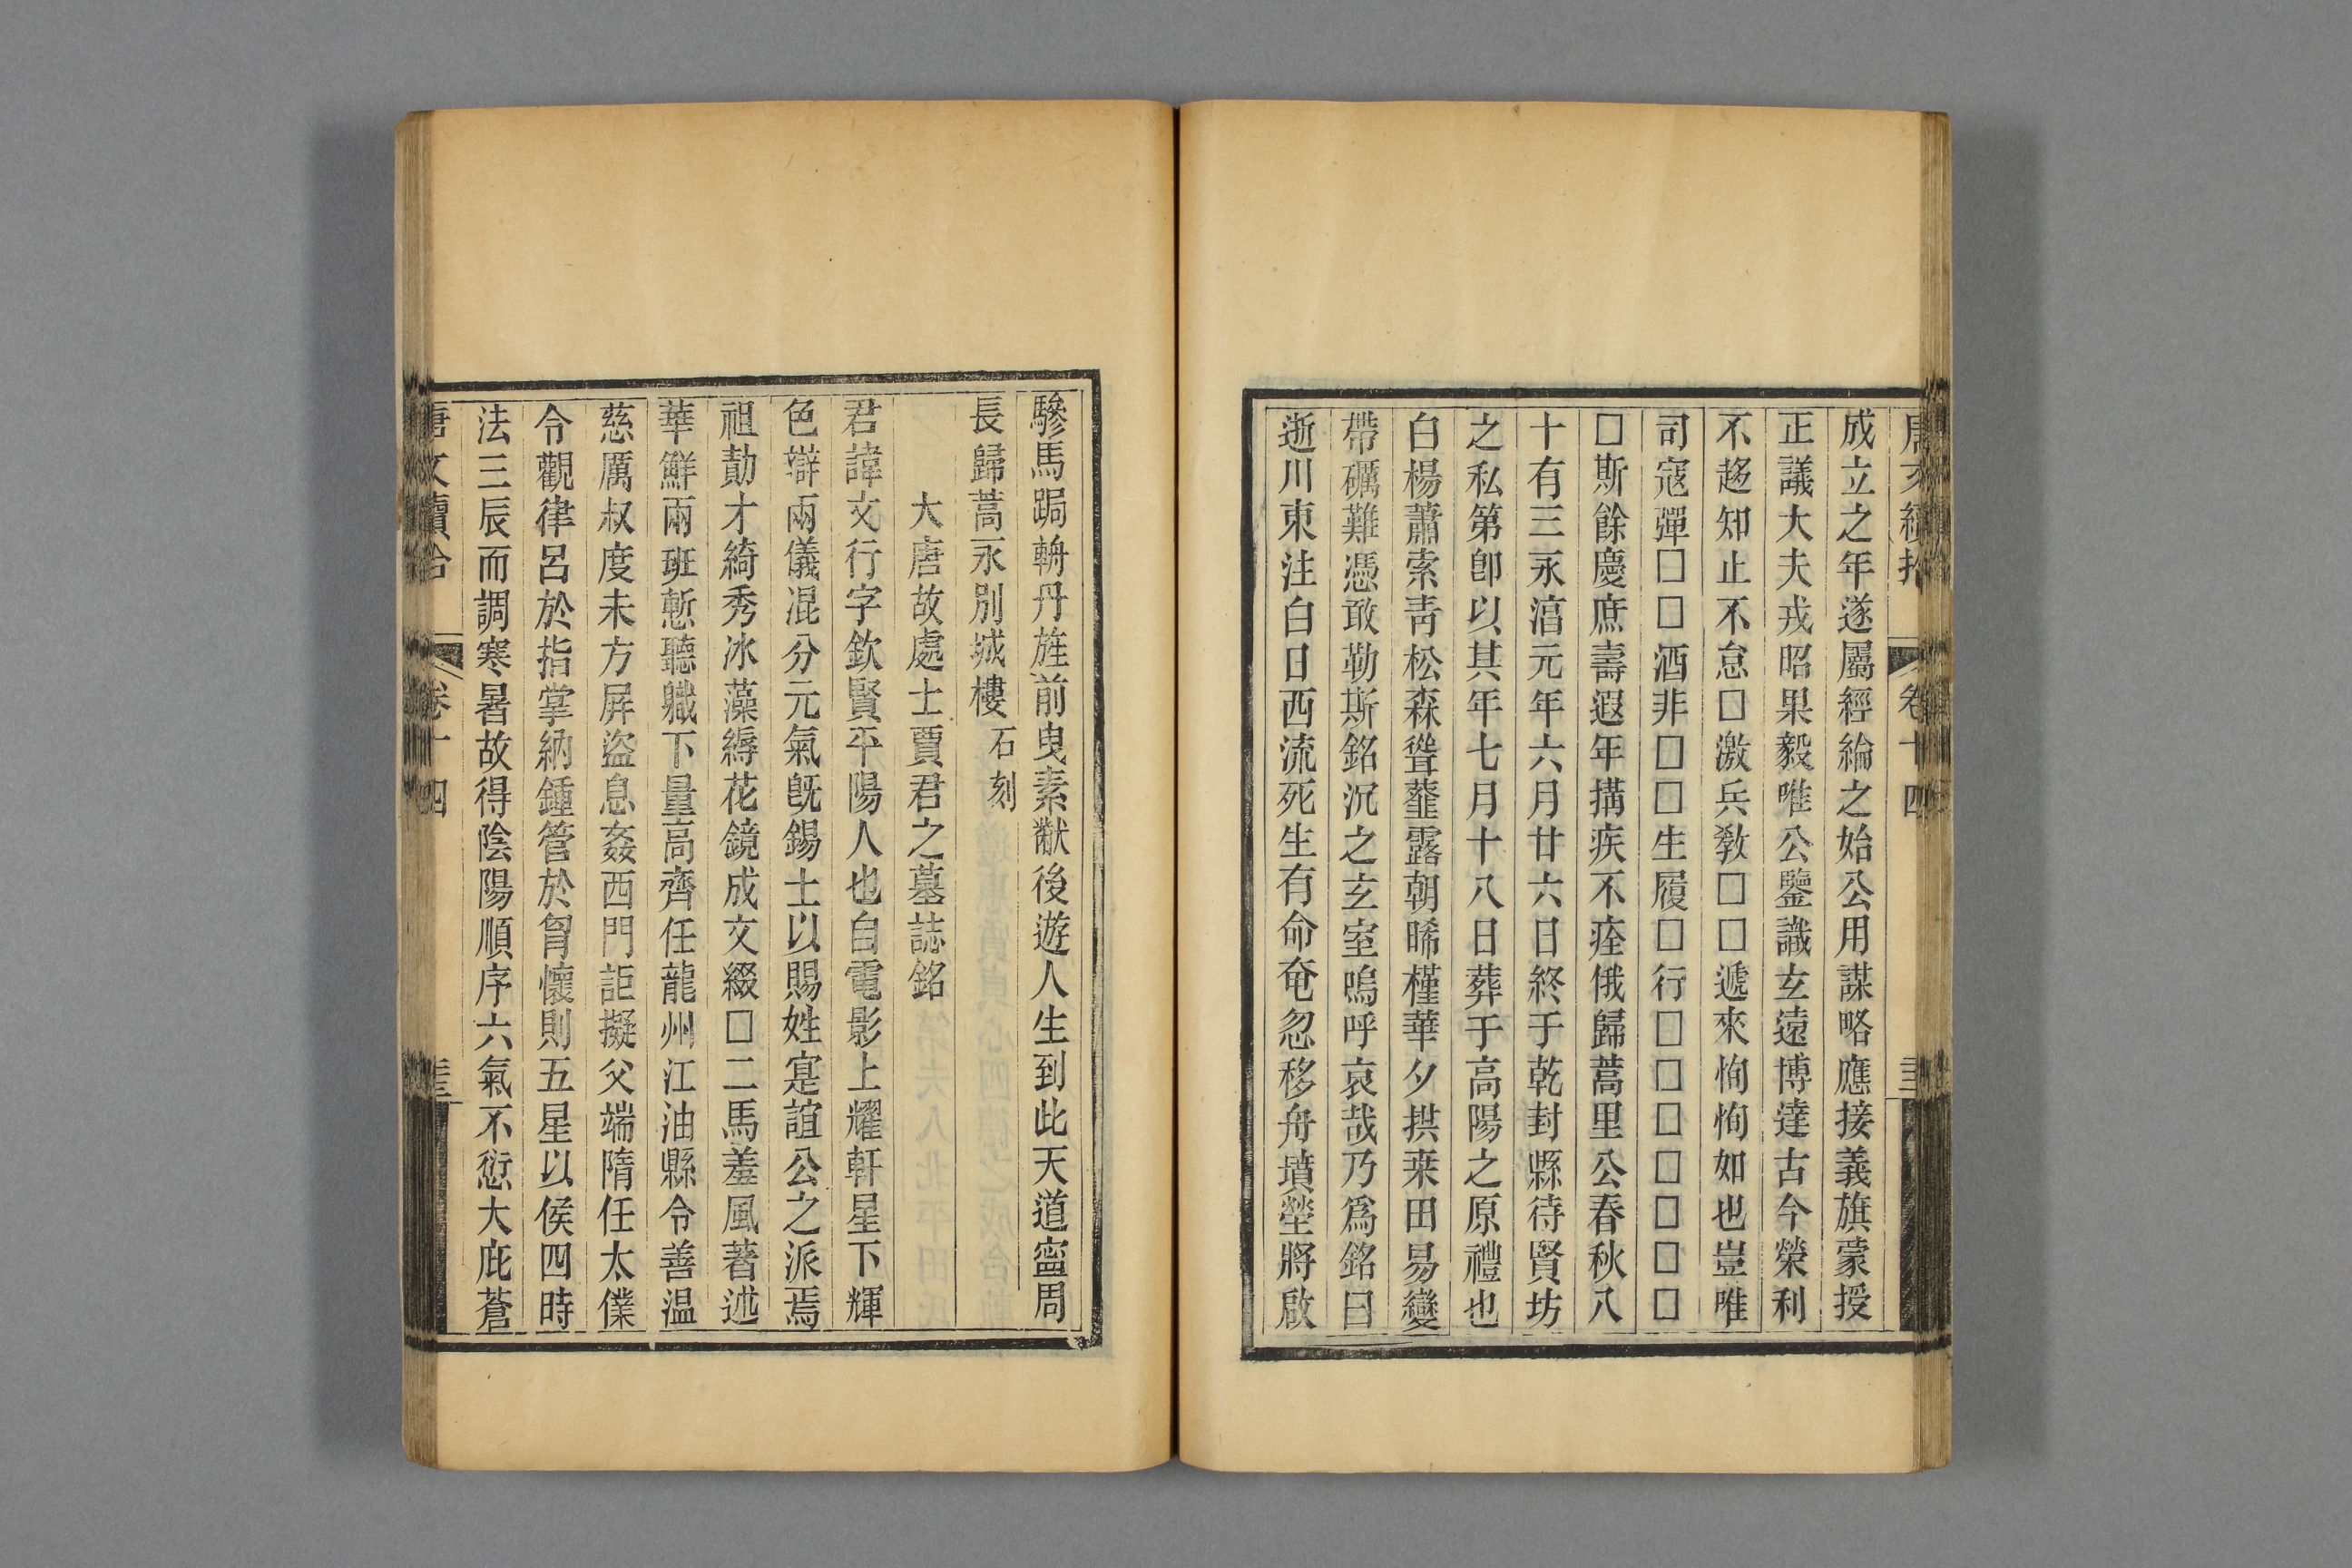 成立之年遂屬經綸之始公用謀略應接義旗蒙授
正議大夫戎昭果毅唯公鑒識玄遠博達古今榮利
不趍知止不怠□激兵敎□□遞來恂恂如也豈唯
司寇彈□□酒非□□生履□行□□□□□□□
□斯餘慶庶壽遐年搆疾不痊俄歸蒿里公春秋八
十有三永湻元年六月廿六日終于乾封縣待賢坊
之私第卽以其年七月十八日葬于高陽之原禮也
白楊蕭索靑松森聳薤露朝晞槿華夕拱桒田易變
帶礪難憑敢勒斯銘沉之玄室嗚呼哀哉乃爲銘曰
逝川東注白日西流死生有命奄忽移舟墳塋將啟
驂馬跼輈丹旌前曳素猷後遊人生到此天道寍周
長歸蒿永別城樓 石刻
大唐故處士賈君之墓誌銘
君諱文行字欽賢平陽人也自電影上耀軒星下輝
色辯兩儀混分元氣旣錫士以賜姓寔誼公之派焉
祖勣才綺秀冰藻縟花鏡成文綴□二馬羞風著述
華鮮兩班慙聽軄下量高齊任龍州江油縣令善温
慈厲叔度未方屏盜息姦西門詎擬父端隋任太僕
令觀律呂於指掌納鍾管於胷懷則五星以侯四時
法三辰而調寒暑故得陰陽順序六氣不愆大庇蒼
唐文續拾 卷十四